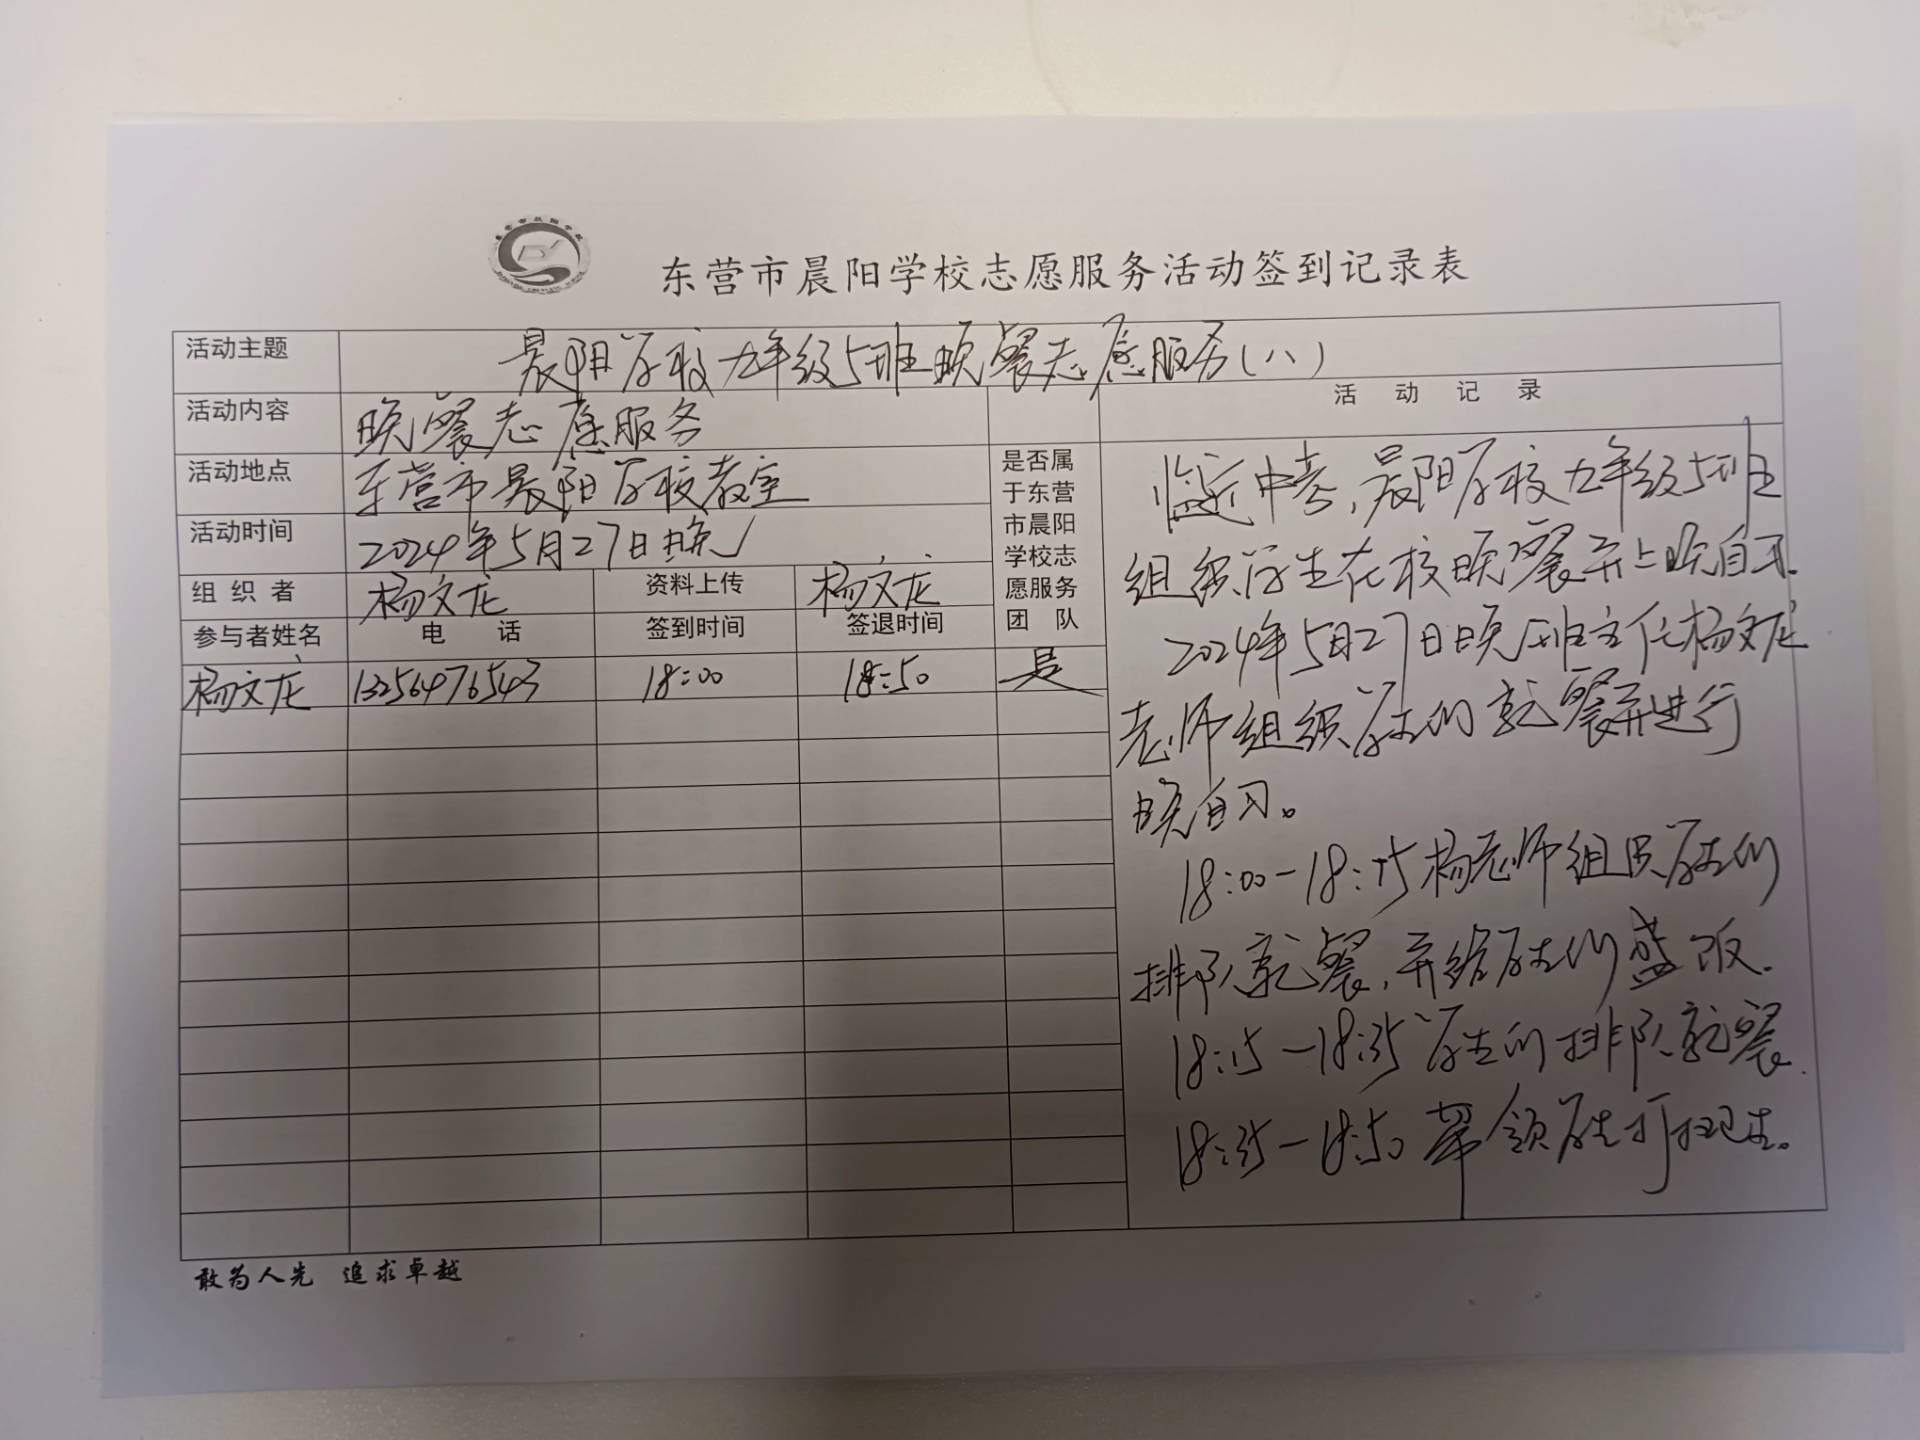 东营市晨阳学校志愿服务活动签到记录表
活动主题 晨阳学校九年级5班晚餐志愿服务(八)
活动内容 晚餐志愿服务
活动地点 东营市晨阳学校教室
活动时间 2024年5月27日晚
组织者 杨文龙 资料上传 杨文龙
是否属
于东营
市晨阳
学校志
愿服务
团 队
参与者姓名 电 话 签到时间 签退时间
杨文龙 13256476543 18:00 18:50 是
活 动 记 录
临近中考,晨阳学校九年级5班
组织学生在校晚餐并上晚自习.
2024年5月27日晚,班主任杨文龙
老师组织学生们就餐并进行
晚自习。
18:00-18:15杨老师组织学生们
排队就餐,并给学生们盛饭.
18:15-18:35学生们排队就餐.
18:35-18:50带领学生打扫卫生。
敢为人先 追求卓越